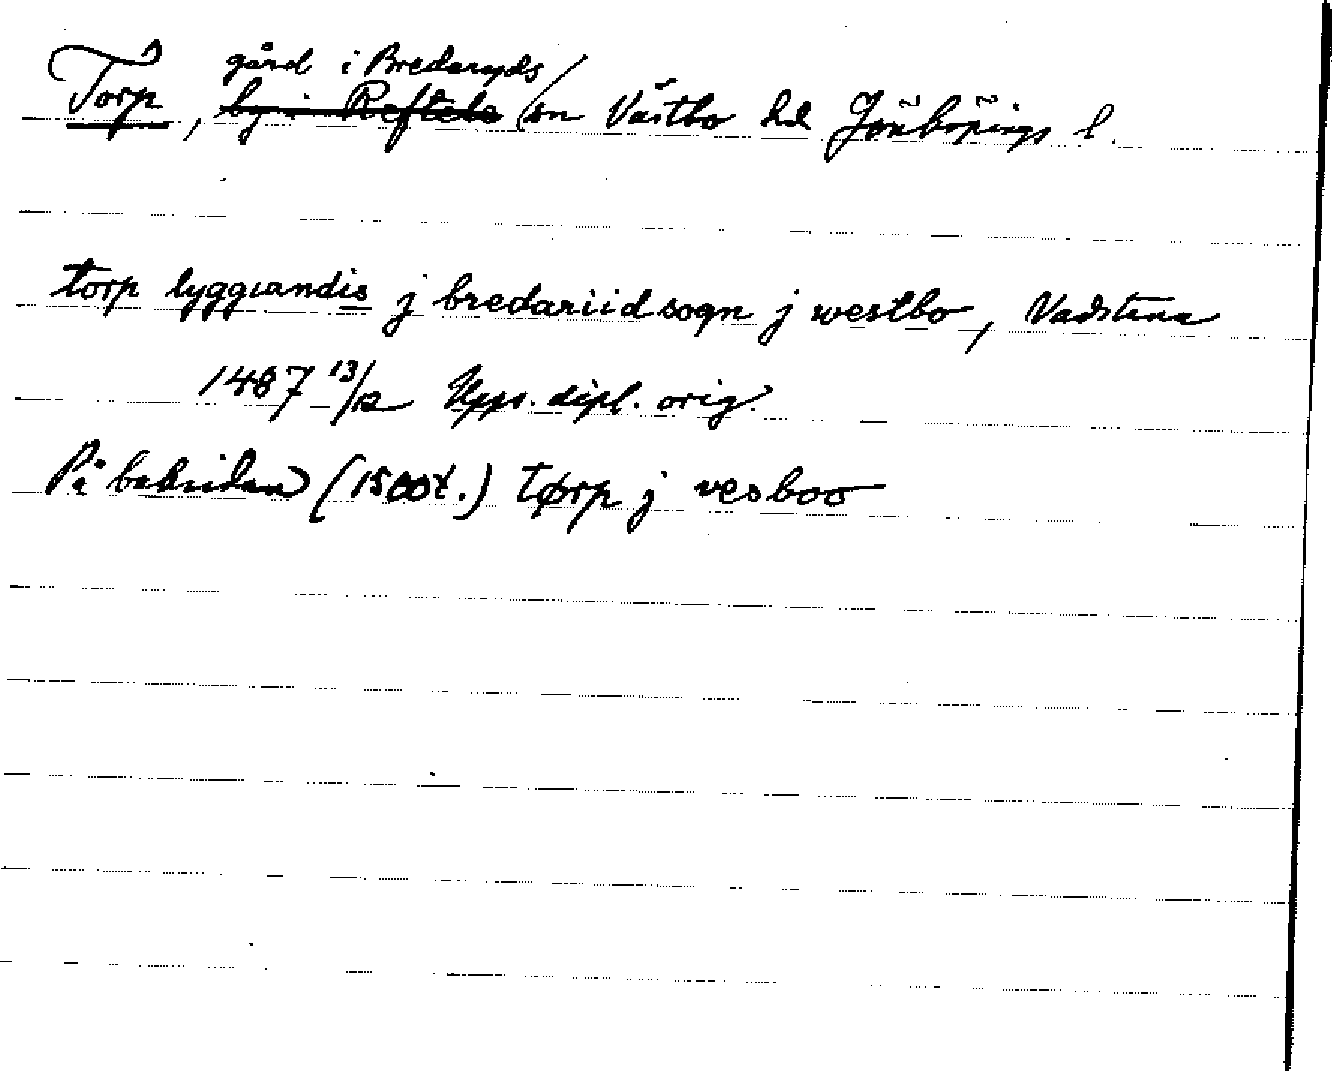 gård i Bredaryds/
Torp, by i Reftele sn Västbo hd Jönköpings l.
torp lyggiandis j bredariid sogn j westbo, Vadstena
1487 13/12 Upps. dipl. orig.
På baksidan (1500t.) tørp j vesboo